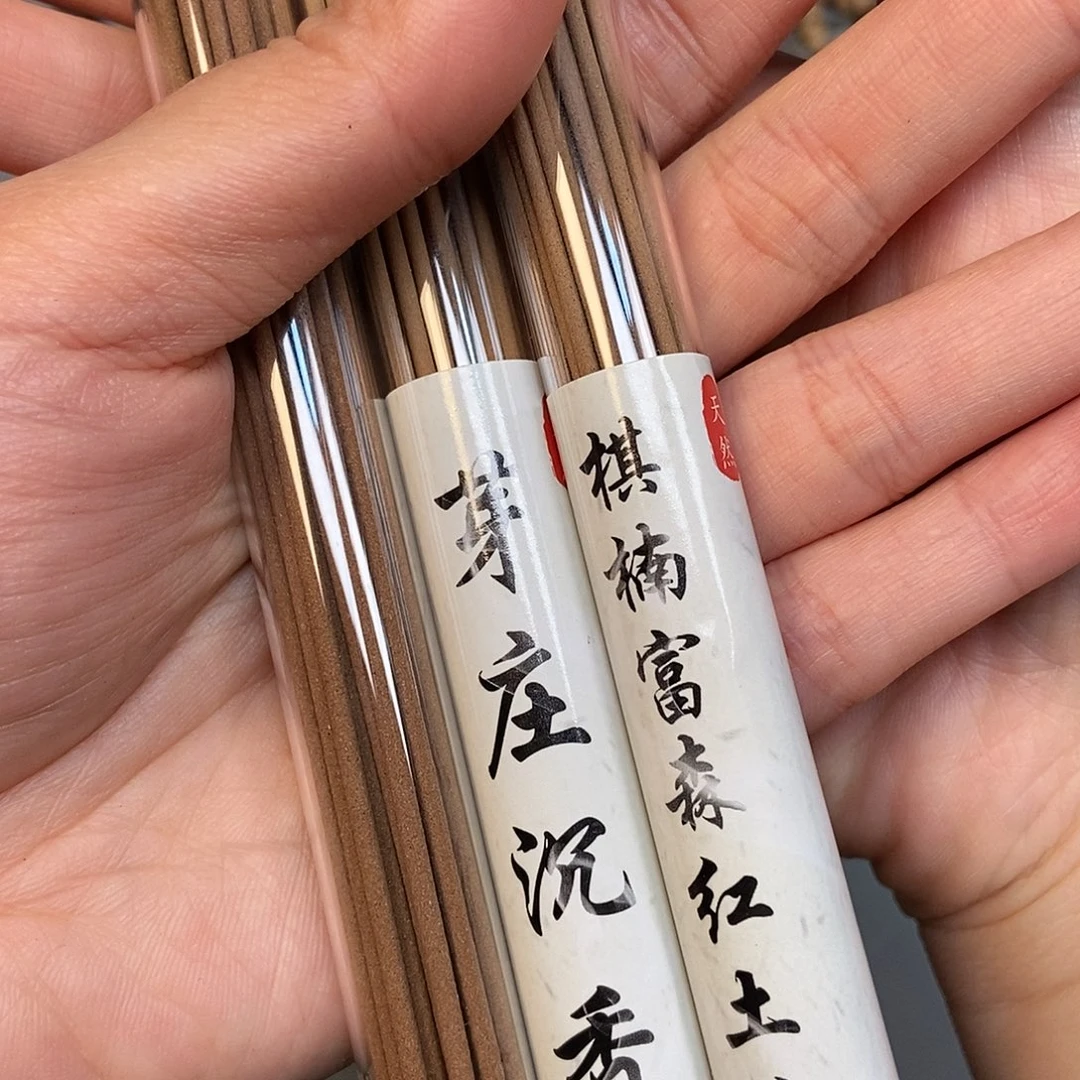 芽庄沉香
棋楠富森红土
天然